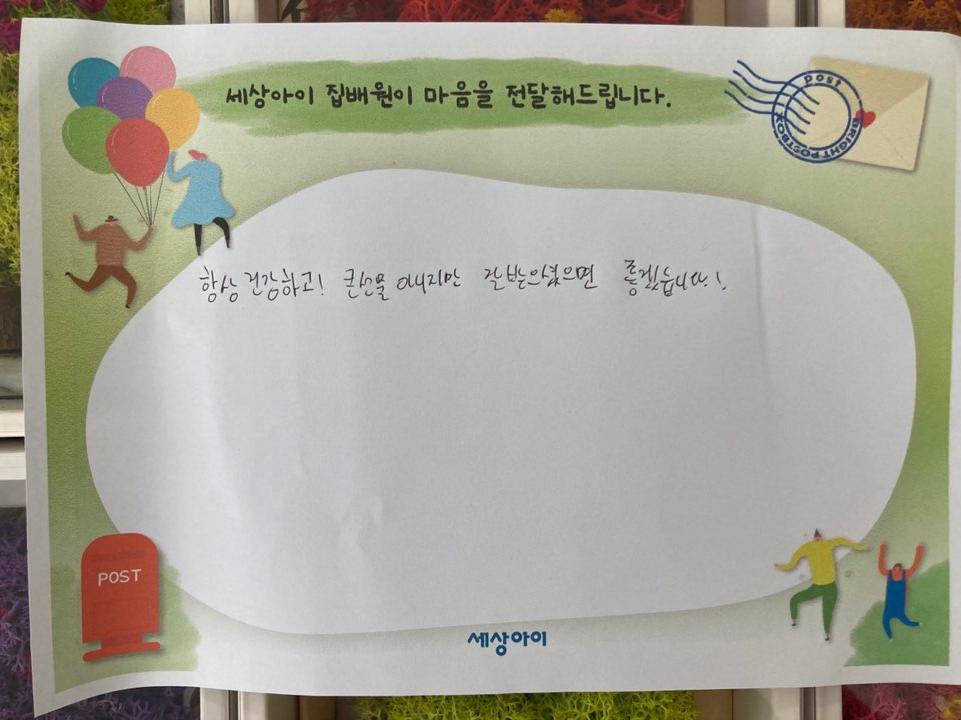 세상아이 집배원이 마음을 전달해드립니다.
POST
BRIGHT POSTBOX
항상 건강하고! 큰선물 아니지만 잘받으셨으면 좋겠습니다.!
POST
세상아이